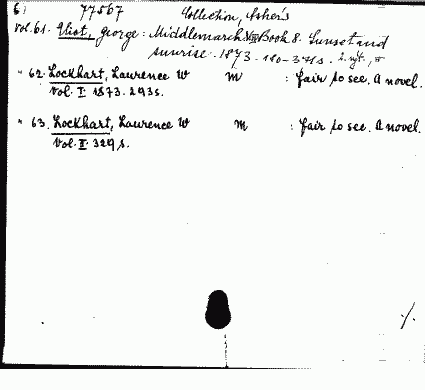 6. 77567 Collection, Asher's
Vol. 61. Eliot, George: Middlemarch VIII Book 8. Sunset and
sunrise. 1873.
" 62. Lockhart, Laurence W M : Fair to see. A novel.
Vol. I. 1873. 293 s.
" 63. Lockhart, Laurence W M : Fair to see. A novel.
Vol. II. 329 s.